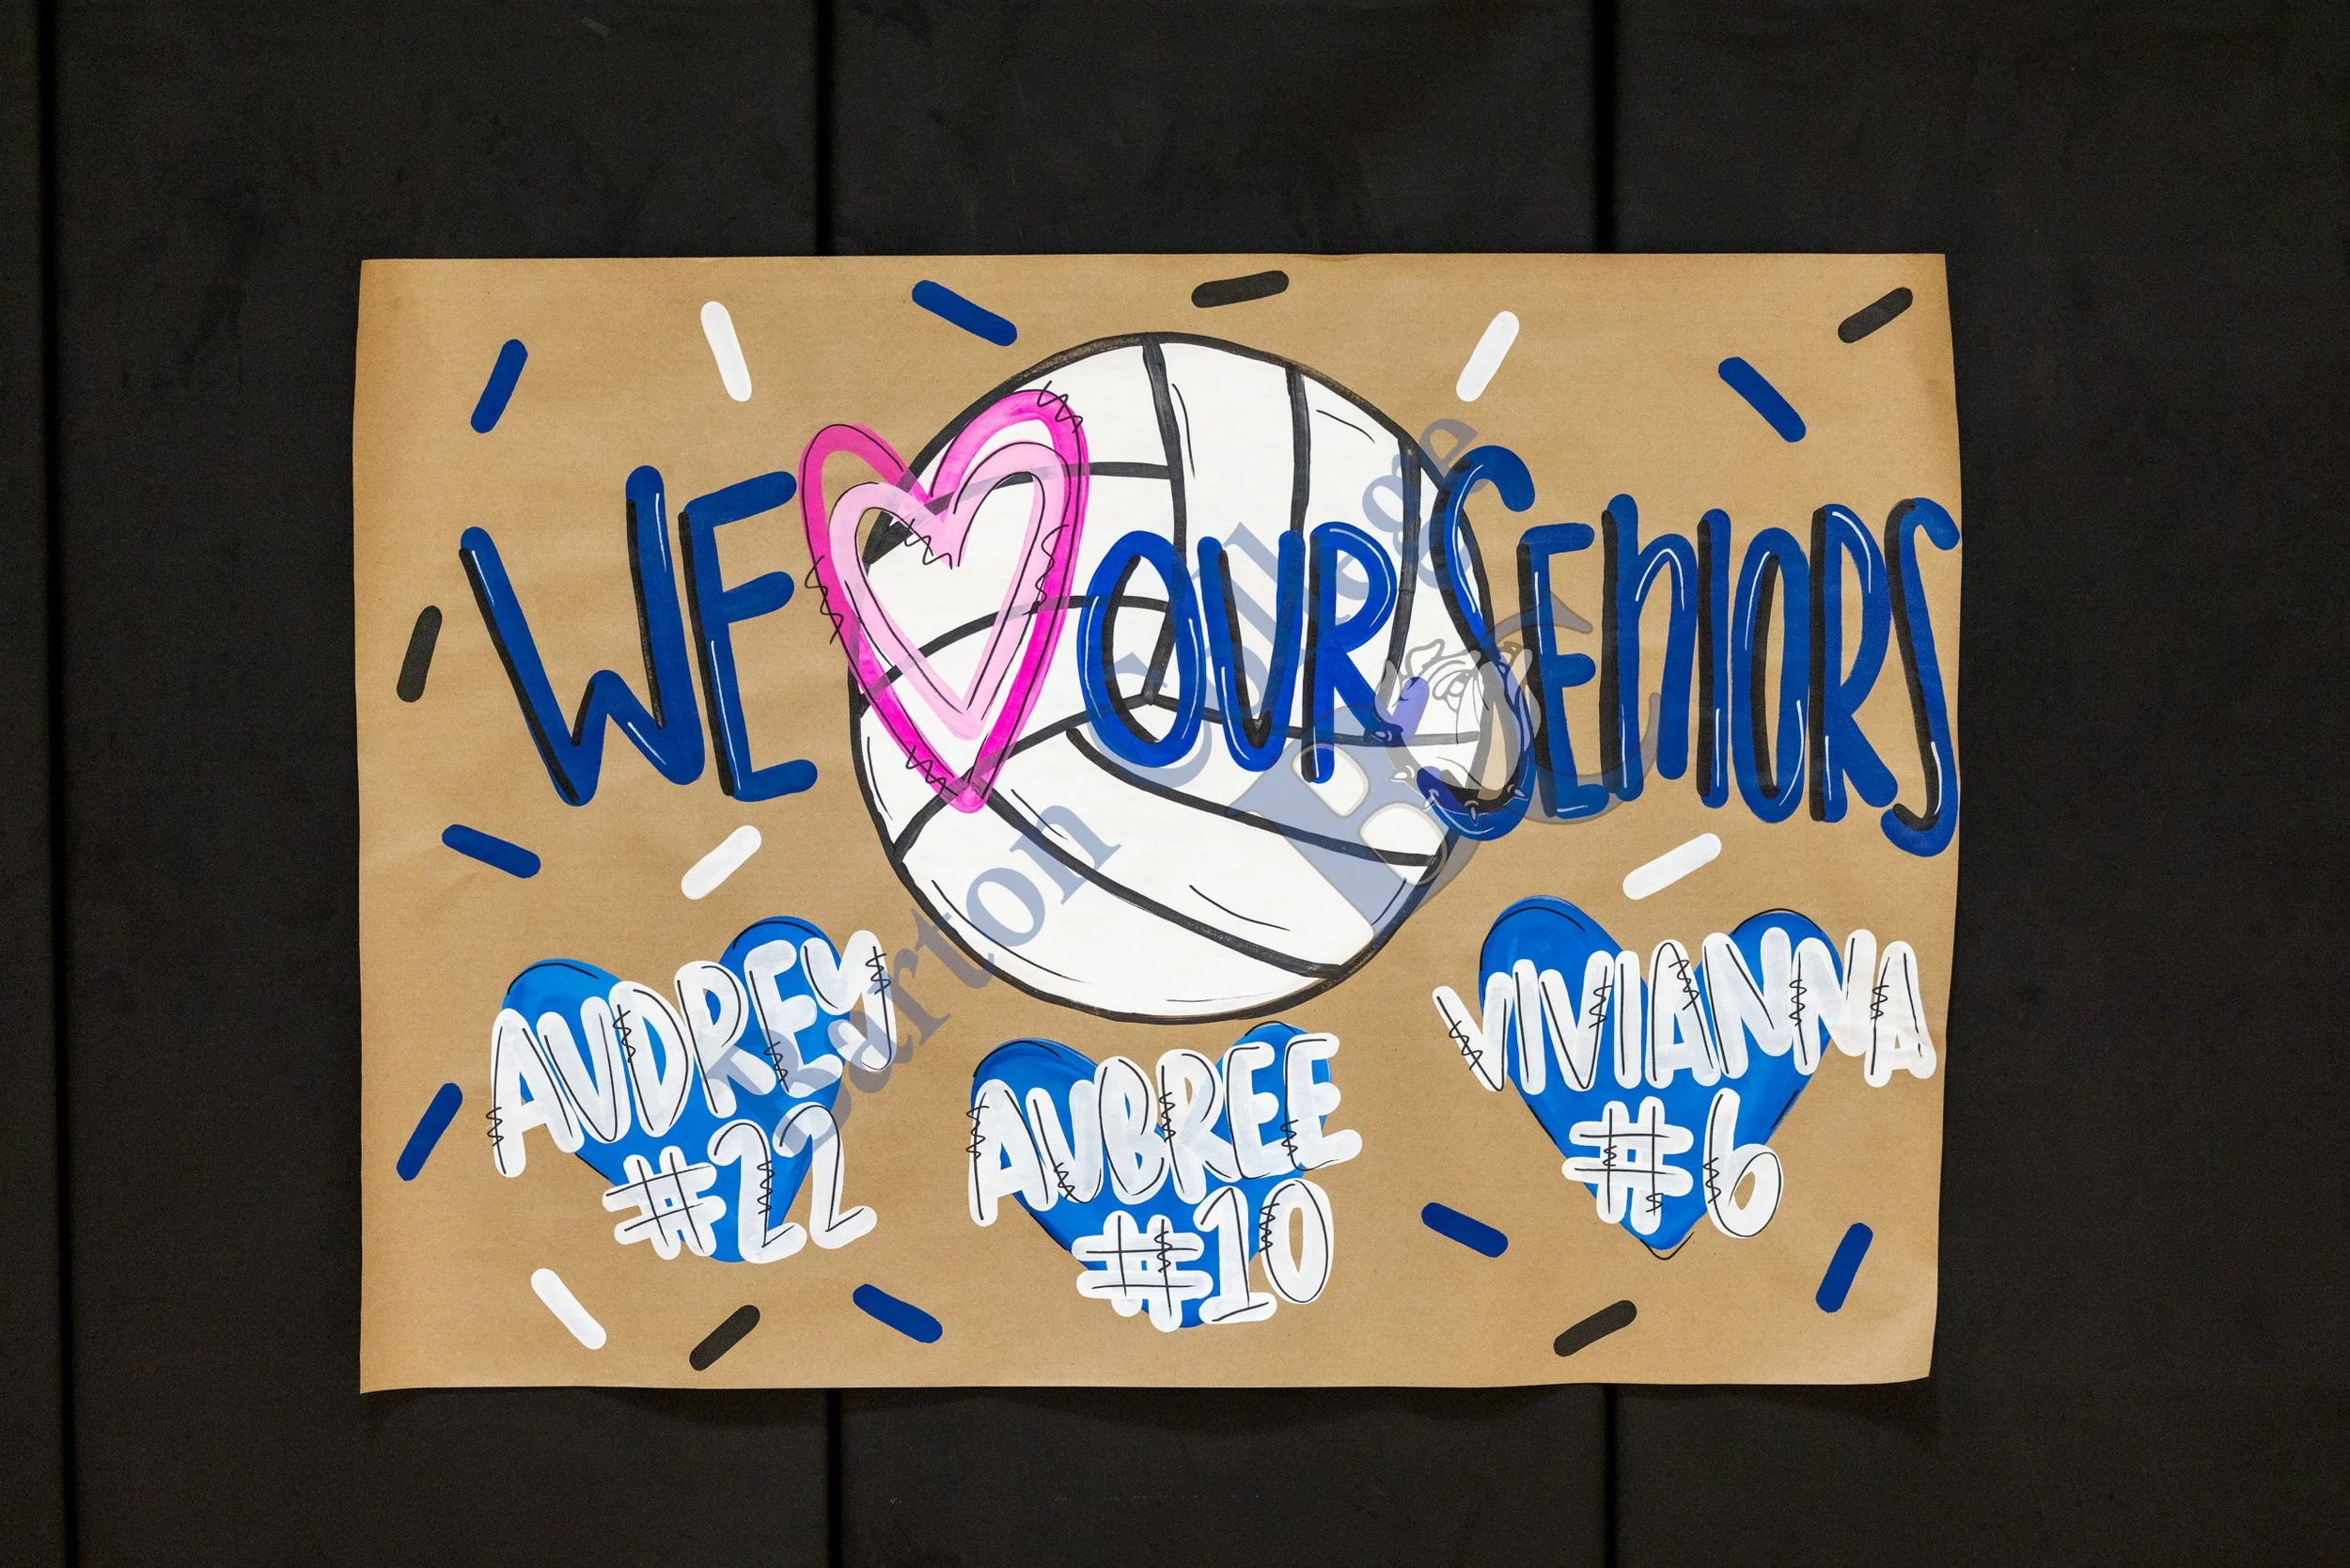 WE OUR SENIORS
AUDREY
#22
AUBREE
#10
VIVIANNA
#6
Barton College
BC